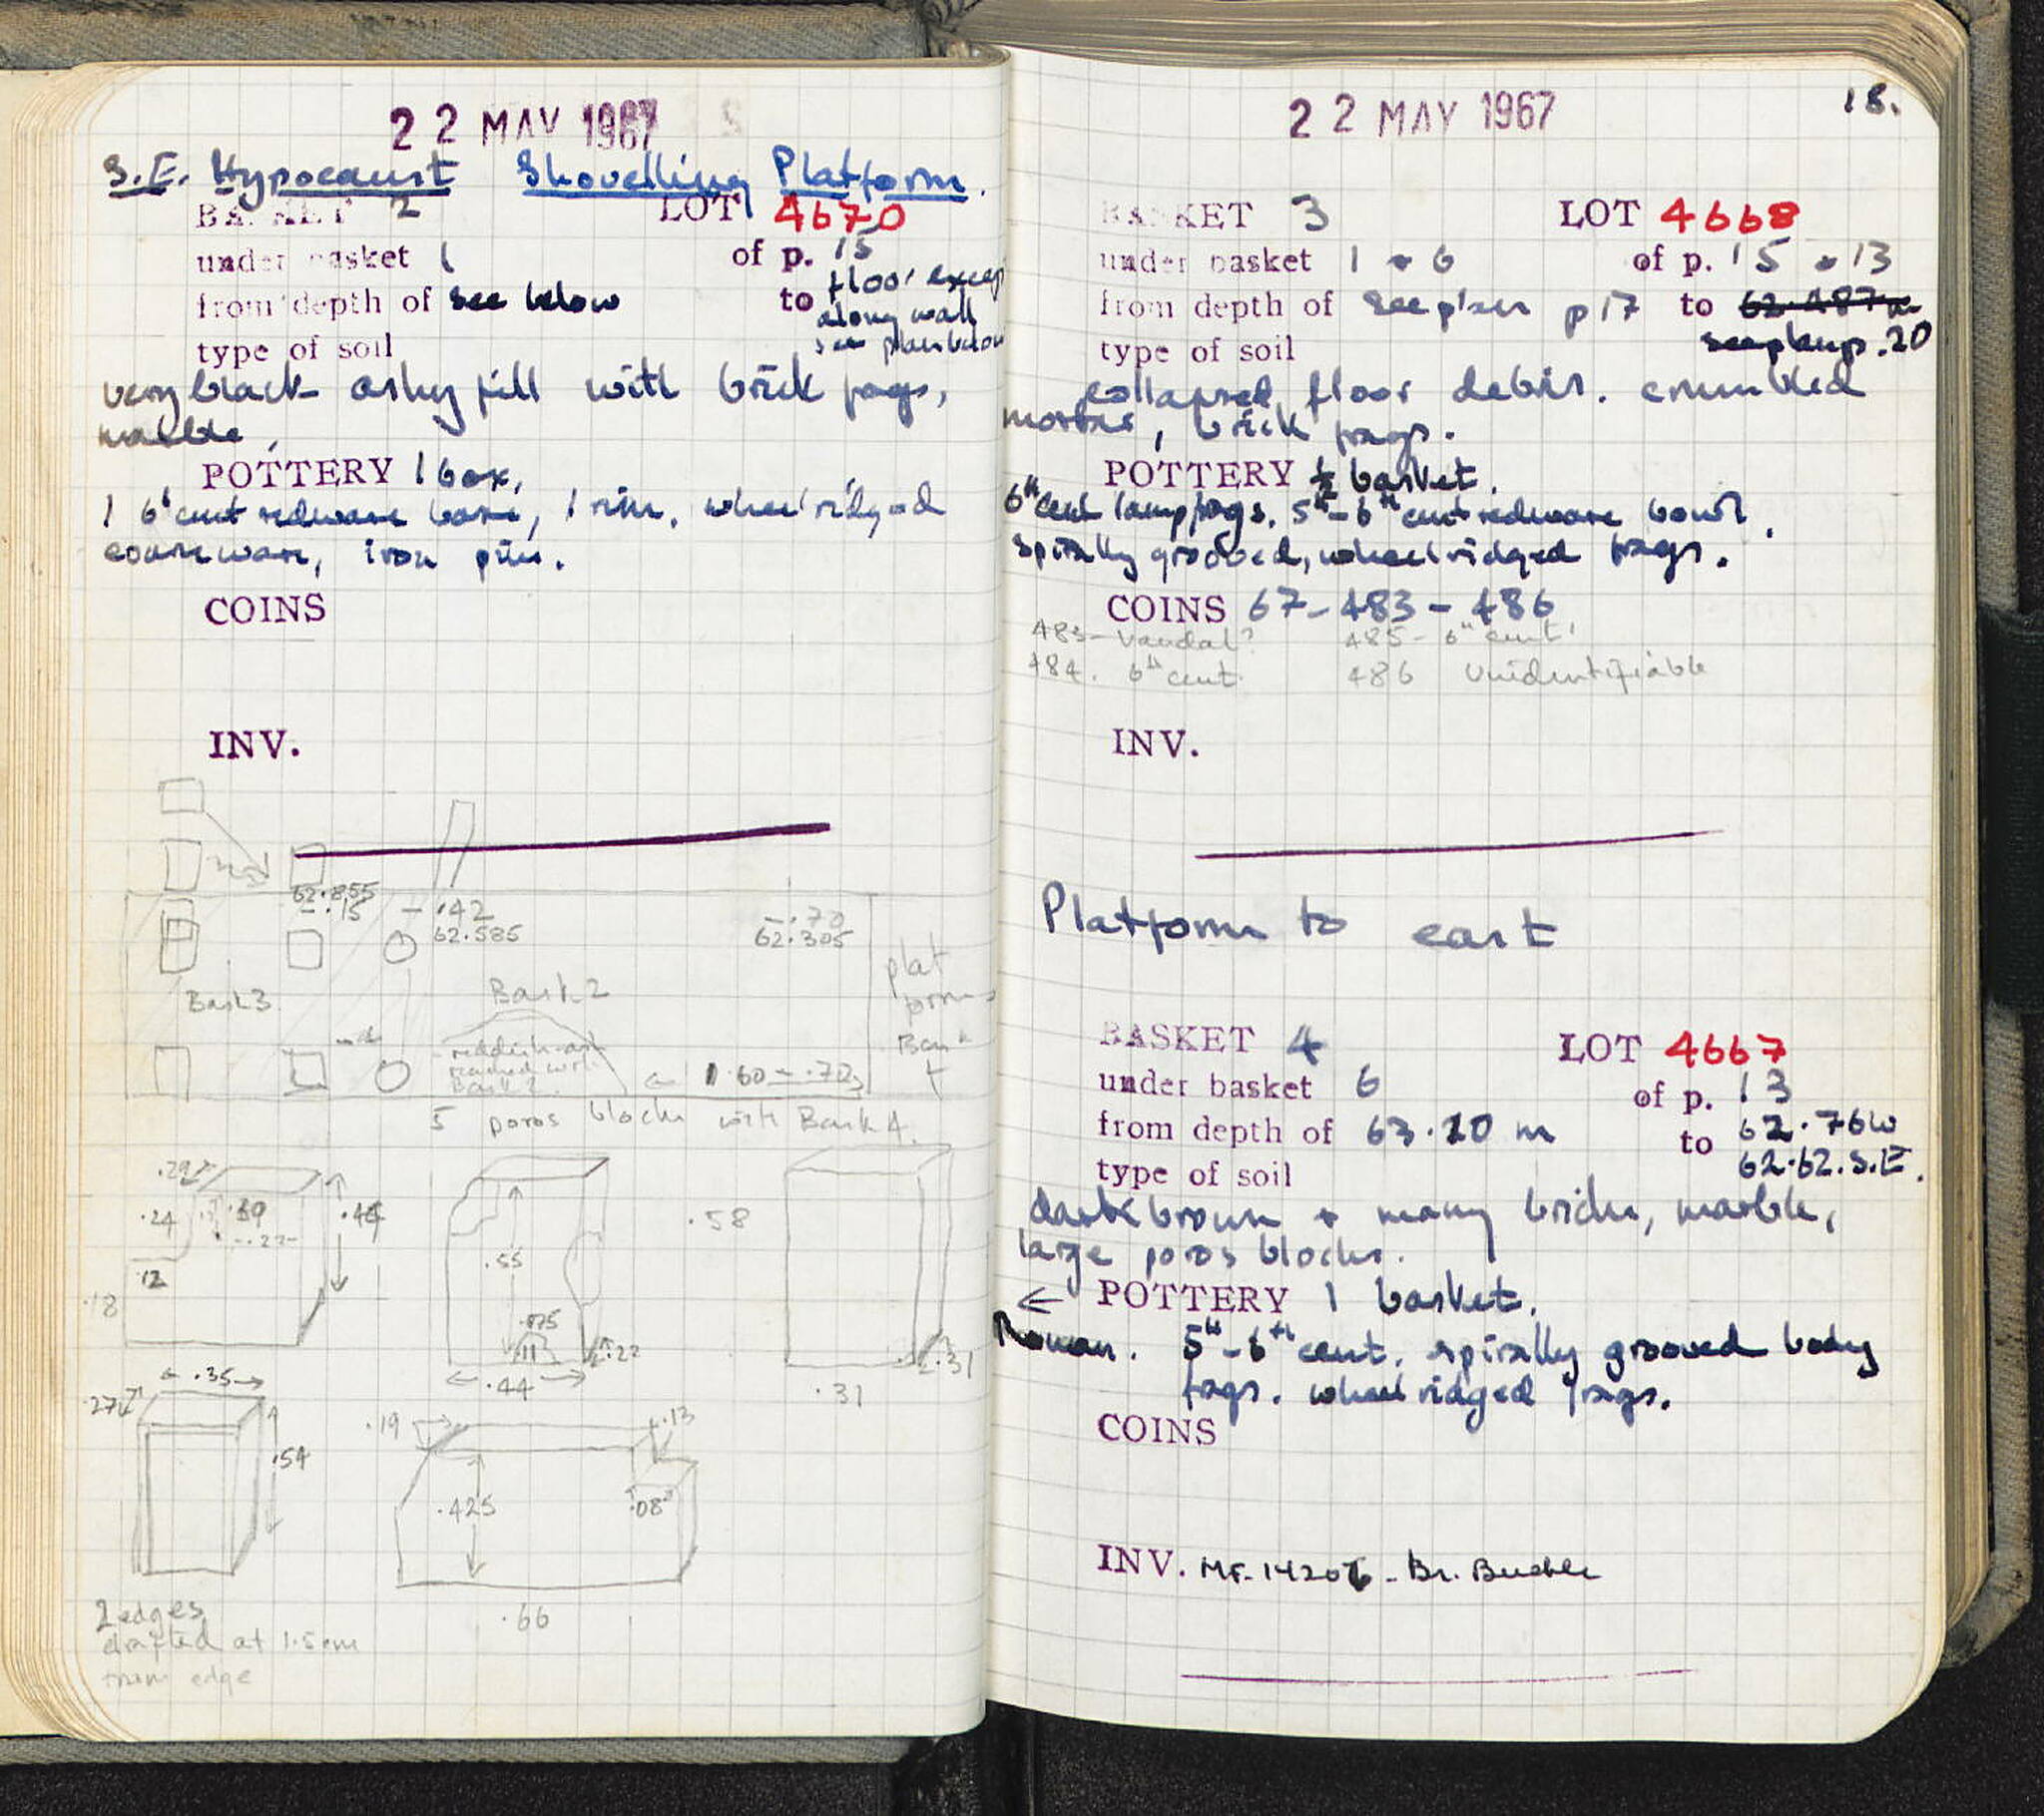 22 MAY 1967
S.E. Hypocaust Shovelling Platform.
BASKET 2 LOT 4670
under basket 1 of p. 15
from depth of see below to floor except
along wall
see plan below
type of soil
very black ashy fill with brick frags,
marble,
POTTERY 1 box,
1 6th cent redware base, 1 rim, wheelridged
coarseware, iron pin.
COINS
INV.
62.855
-.15 -.42 -.70
62.585 62.305
plat
form
Bask 3 Bask 2
Bask
4
reddish ash
removed with
Bask 2.
← 1.60 - .70
5 poros blocks with Bask 4.
.29
.24 .19 .46
.22
.12
.18
.55
.075
.11 .22
.44
.58
.31
.31
.35
.27
.54
.19 .13
.425 .08
.66
2 edges
drafted at 1.5cm
from edge
22 MAY 1967 18.
BASKET 3 LOT 4668
under basket 1 + 6 of p. 15 + 13
from depth of see plan p17 to 62.487m
see plan p.20
type of soil
collapsed floor debris. crumbled
mortar, brick frags.
POTTERY ½ basket.
6th cent lamp frags. 5th-6th cent redware bowl.
spirally grooved, wheelridged frags.
COINS 67-483-486
483- Vandal? 485- 6th cent.
484. 6th cent. 486 Unidentifiable
INV.
Platform to east
BASKET 4 LOT 4667
under basket 6 of p. 13
from depth of 63.20 m to 62.76W
62.62.S.E.
type of soil
dark brown + many bricks, marble,
large poros blocks.
← POTTERY 1 basket.
Roman. 5th-6th cent. spirally grooved body
frags. wheelridged frags.
COINS
INV. MF-14206 - Br. Buckle